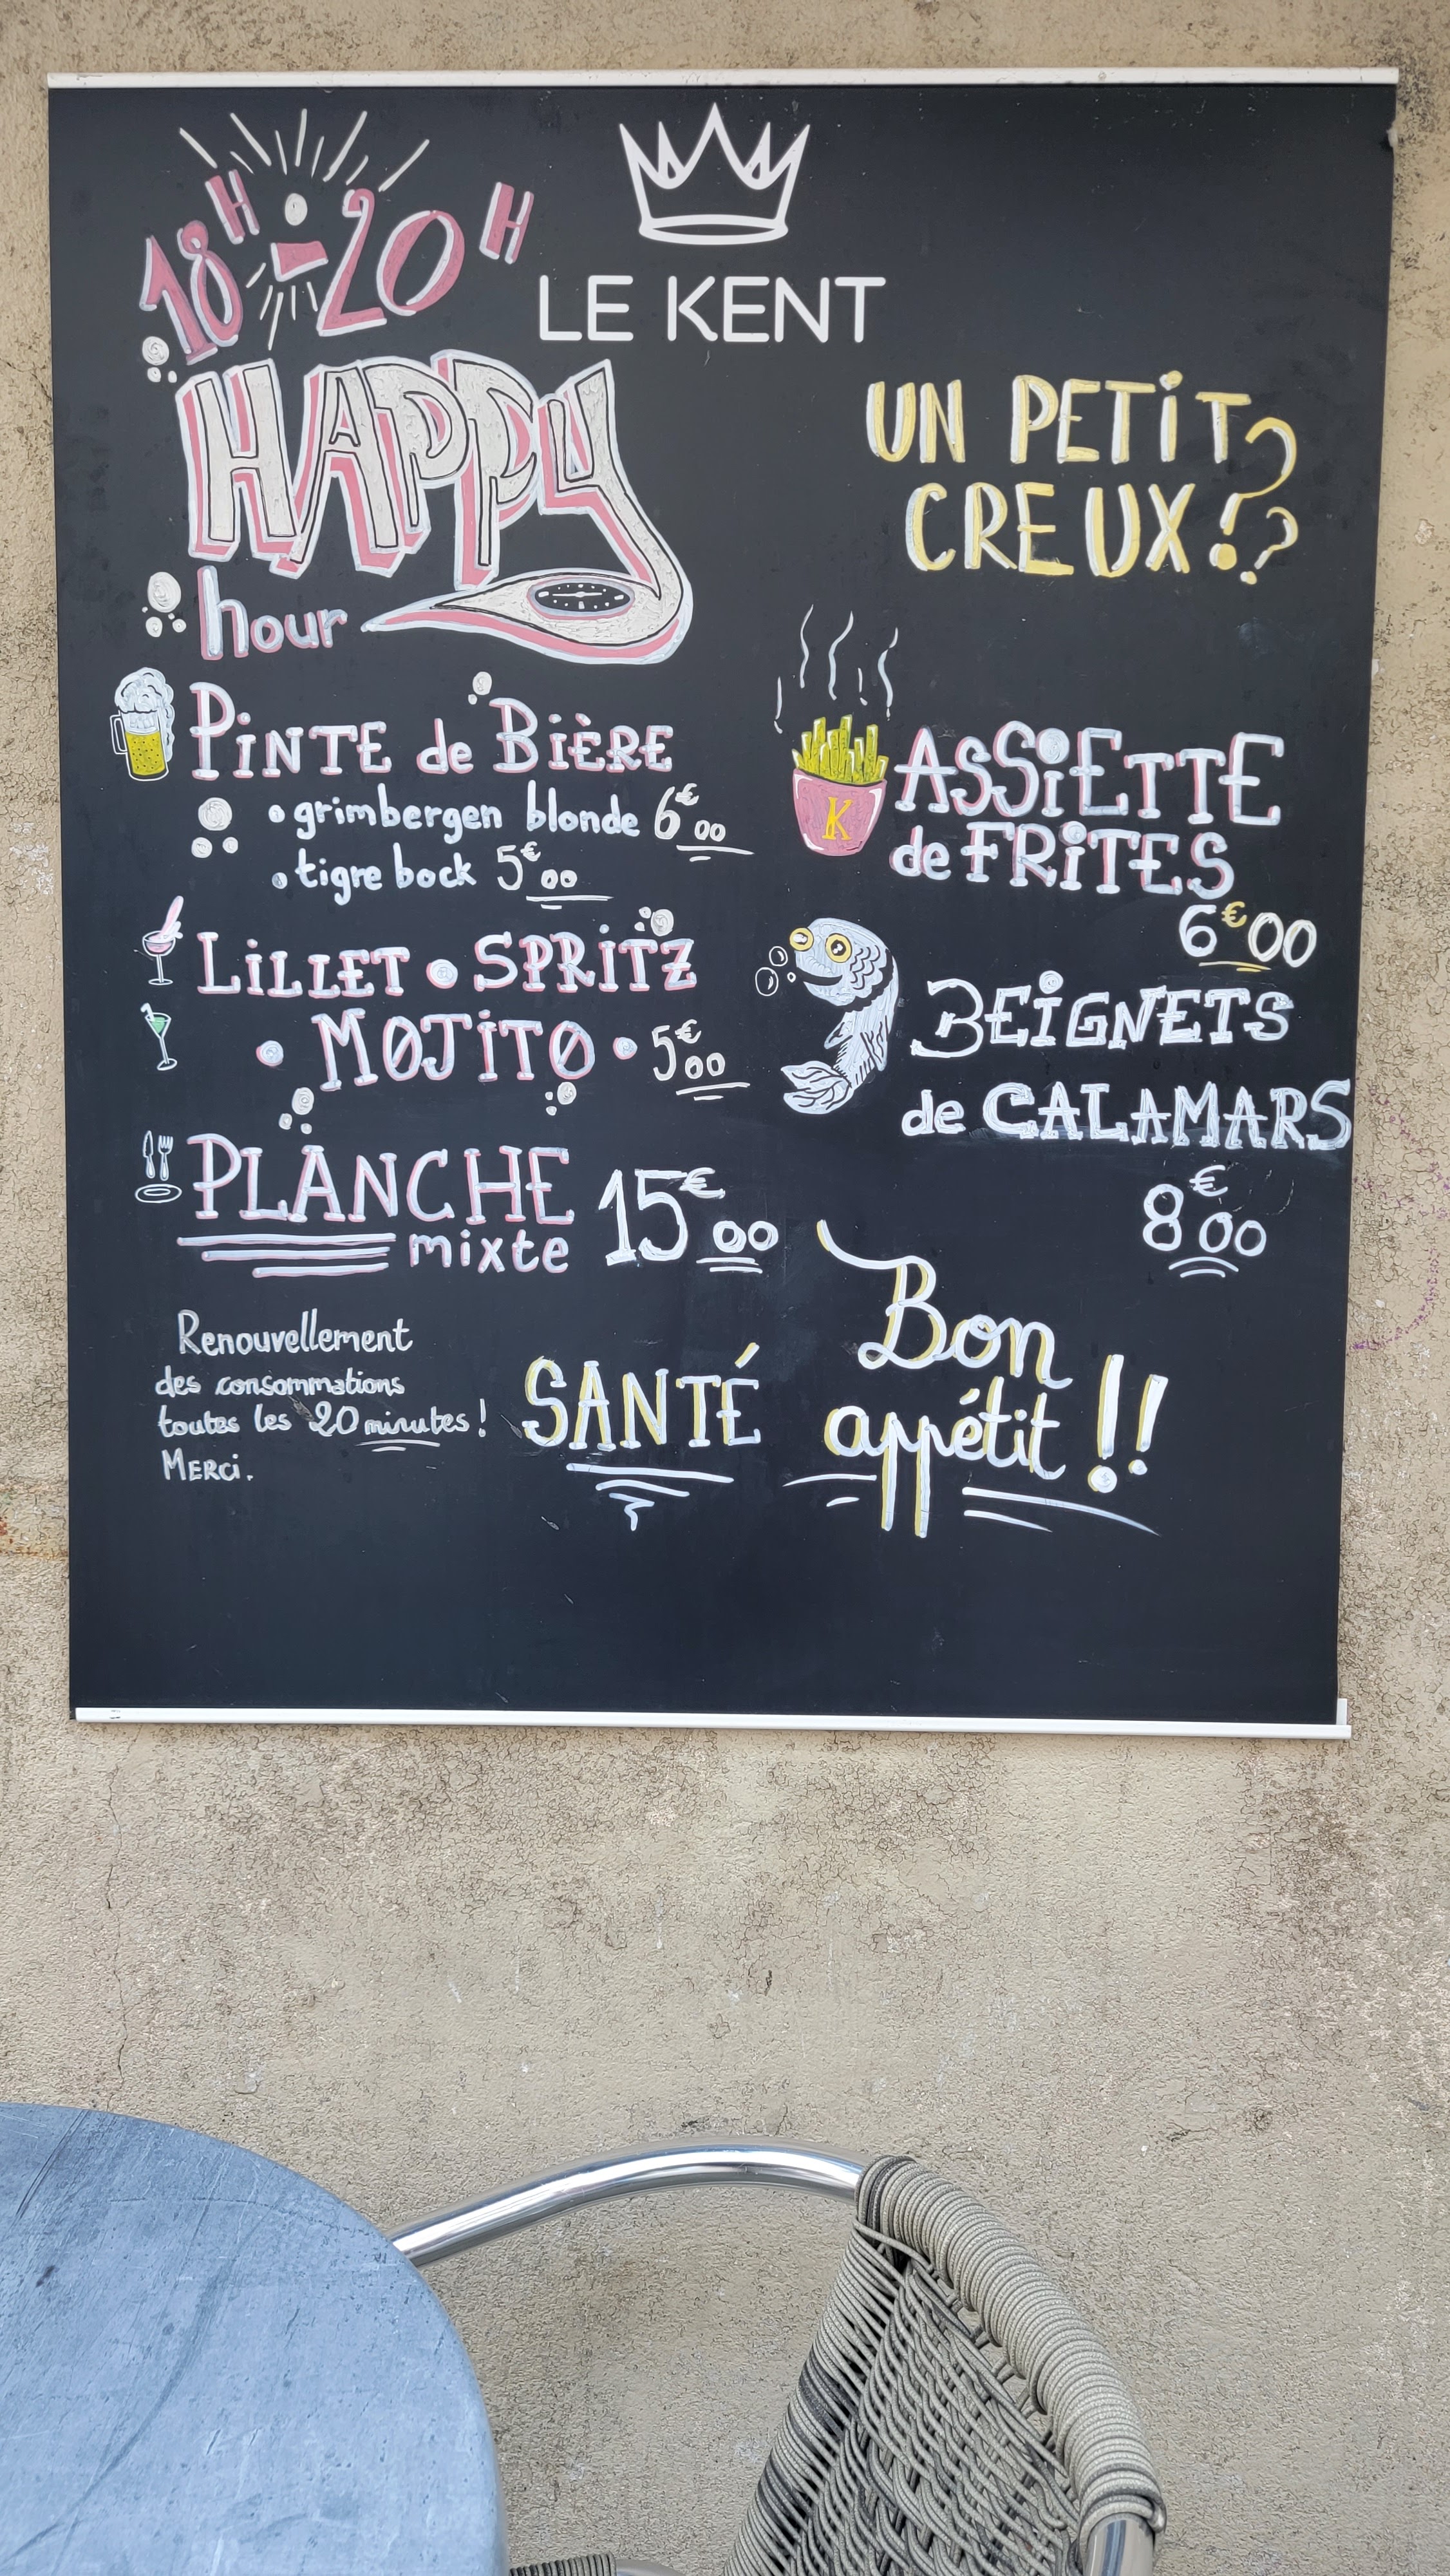 18H-20H
LE KENT
HAPPY
hour
PiNTE de BiÈRE
• grimbergen blonde 6€00
• tigre bock 5€00
LiLLET • SPRiTZ
• MOJiTO • 5€00
PLANCHE
mixte 15€00
Renouvellement
des consommations
toutes les 20 minutes !
MERCi.
SANTÉ
UN PETiT
CREUX ???
K
ASSiETTE
de FRiTES
6€00
BEiGNETS
de CALAMARS
8€00
Bon
appétit !!